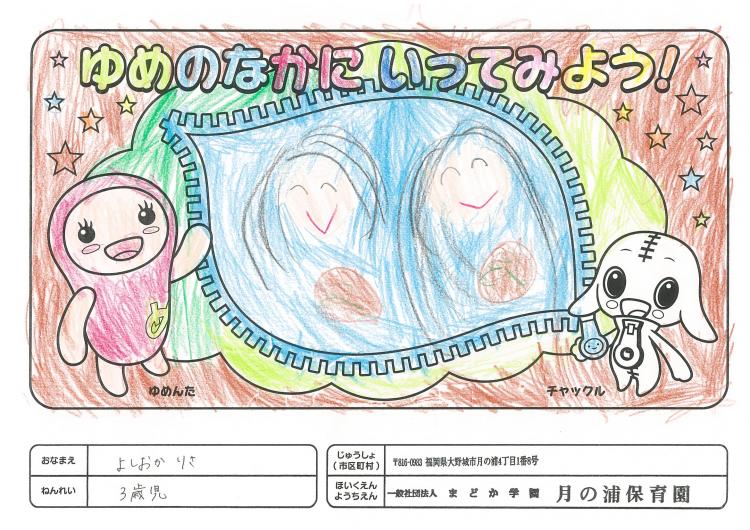 ゆめのなかに いってみよう!
ゆめんた
チャックル
おなまえ
よしおか りさ
ねんれい
3歳児
じゅうしょ
(市区町村)
〒816-0983 福岡県大野城市月の浦4丁目1番6号
ほいくえん
ようちえん
一般社団法人 まどか学園 月の浦保育園